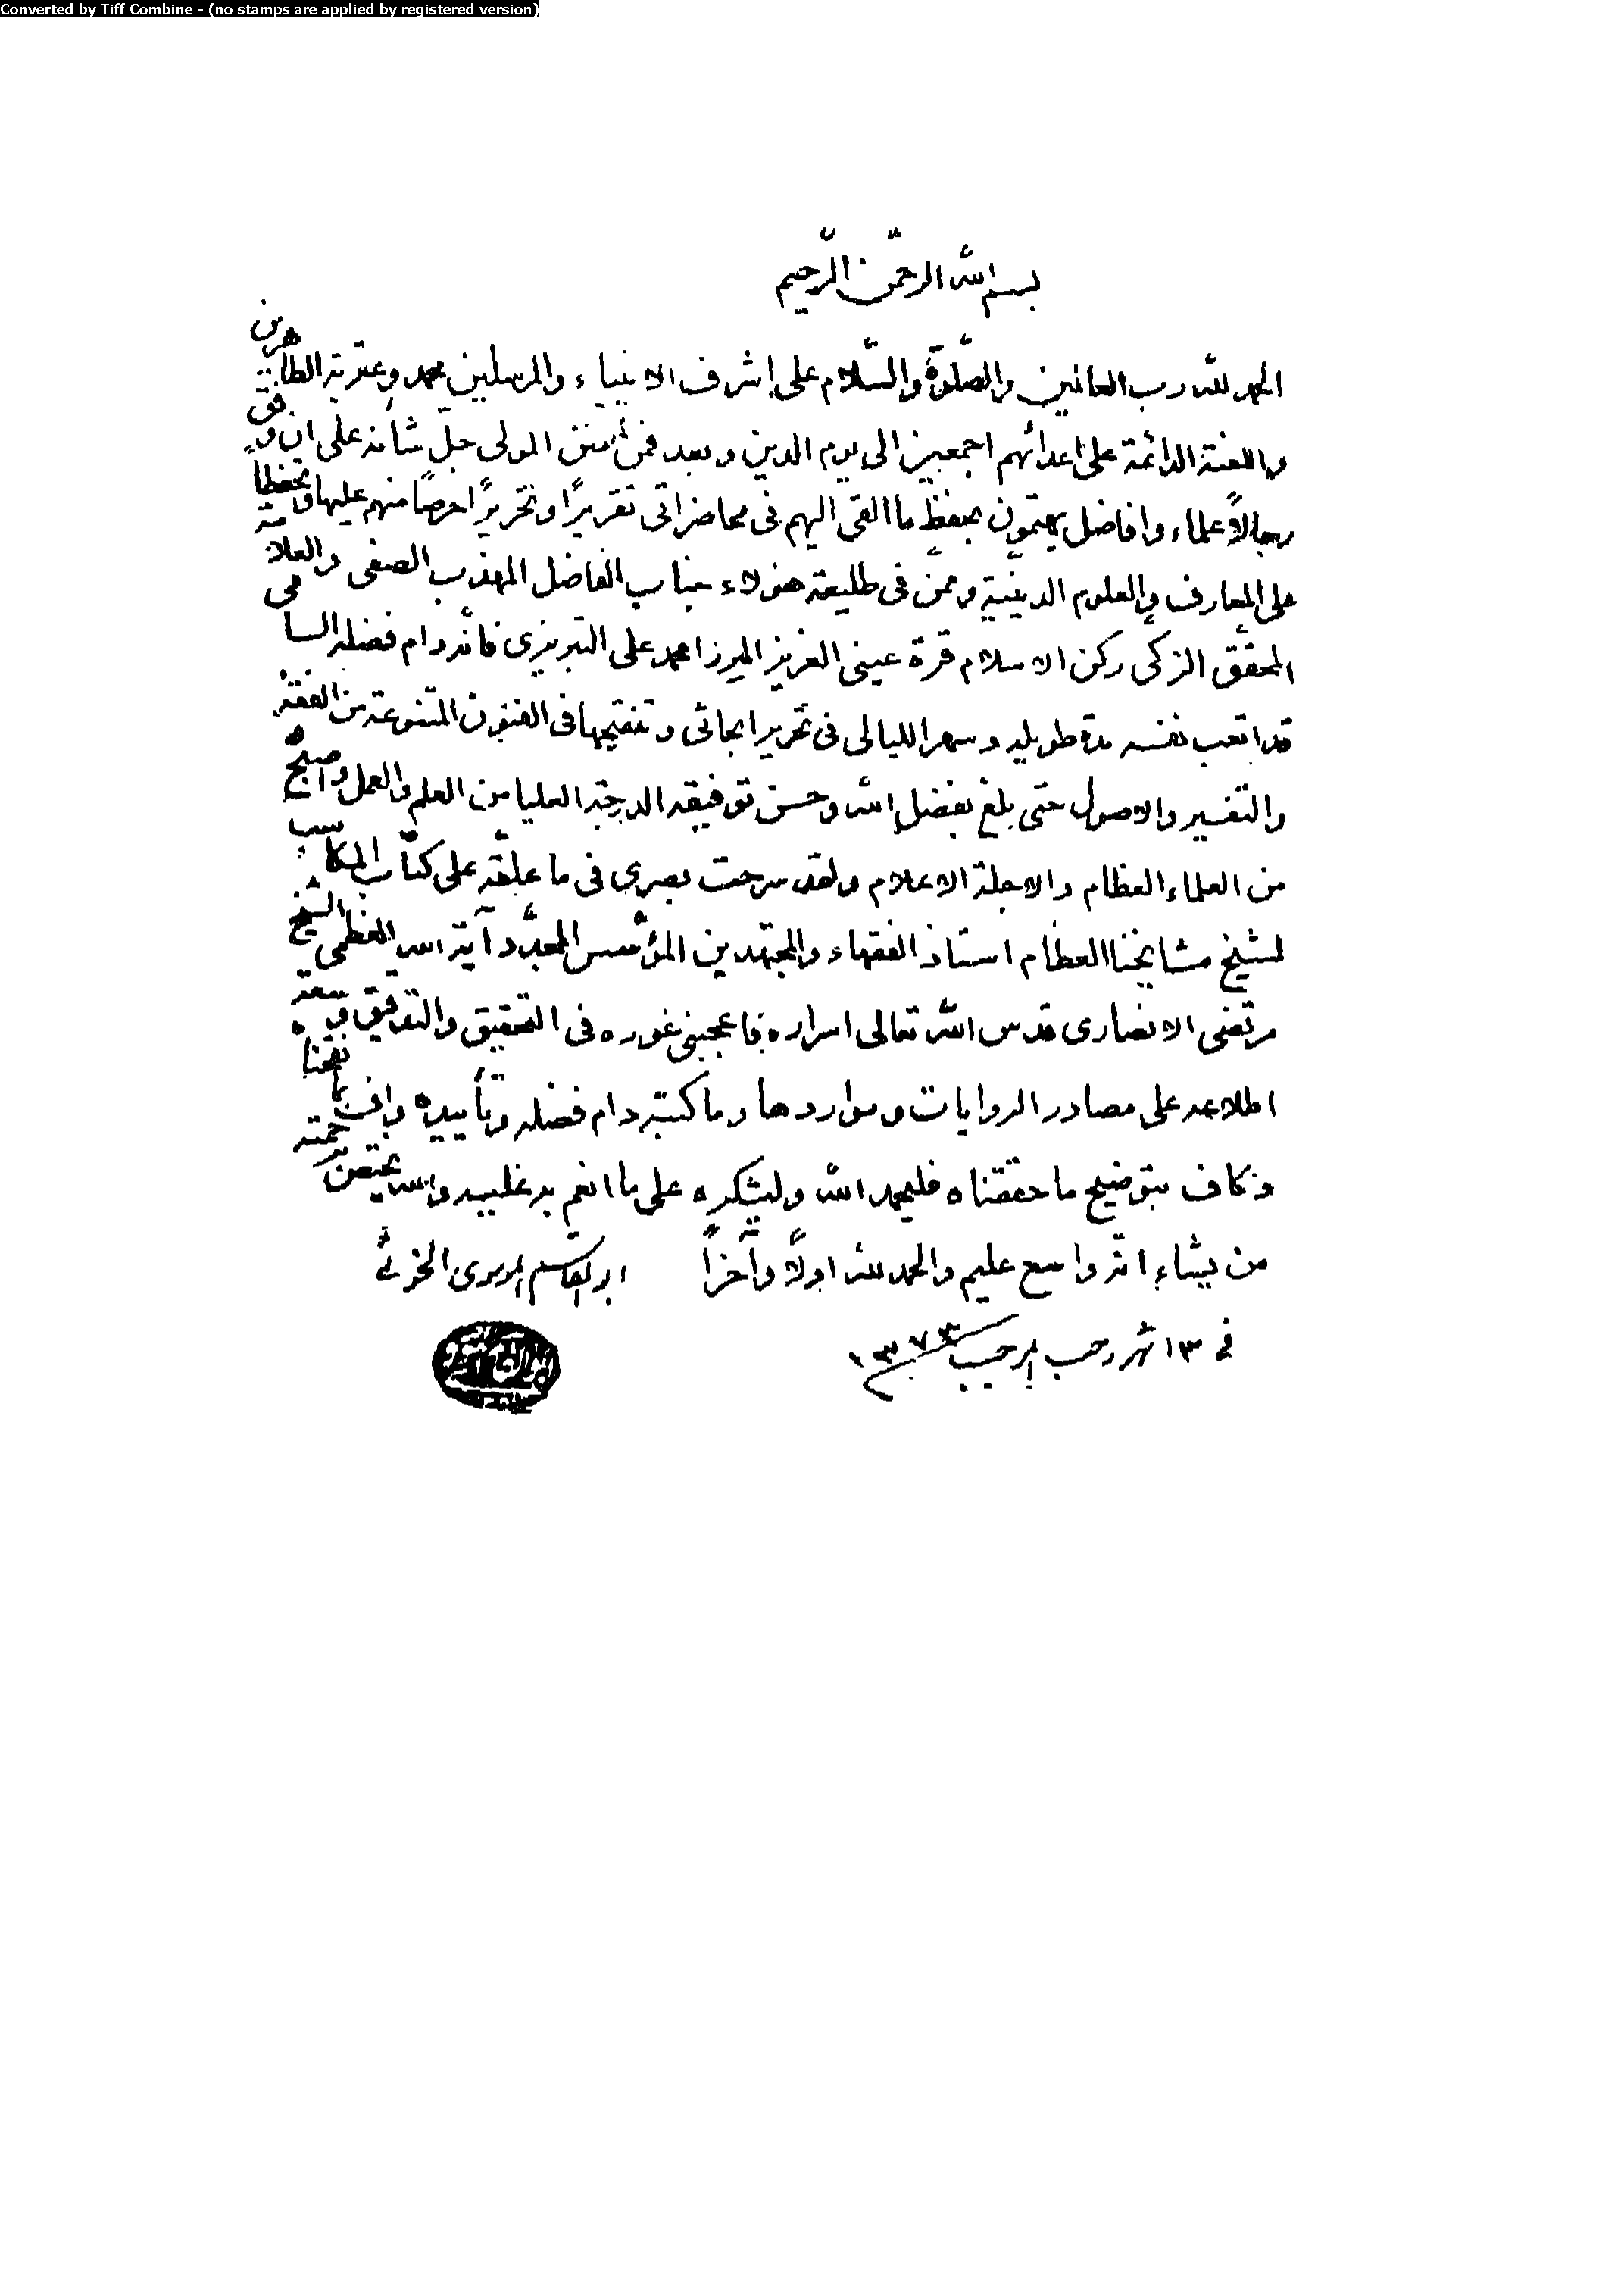 Converted by Tiff Combine - (no stamps are applied by registered version)
بسم الله الرحمن الرّحيم
الحمد لله رب العالمين والصّلوة والسّلام على اشرف الانبياء والمرسلين محمد وعترته الطاهرين
واللعنة الدائمة على اعدائهم اجمعين الى يوم الدين وبعد فمن منن المولى جلّ شأنه على ان وفق
رجالاً علماء وافاضل يهتمون بحفظ ما القى اليهم فى محاضراتى تقريرًا وتحريرًا حرصًا منهم عليها وتحفظا
على المعارف والعلوم الدينية وممن فى طليعة هؤلاء جناب الفاضل المهذب الصفى والعلامة
المحقق الزكى ركن الاسلام قرة عينى العزيز الميرزا محمد على التبريزى فانه دام فضله السامى
قد اتعب نفسه مدة طويلة وسهر الليالى فى تحرير ابحاثى وتنقيحها فى الفنون المتنوعة من الفقه
والتفسير والاصول حتى بلغ بفضل الله وحسن توفيقه الدرجة العليا من العلم والعمل واصبح
من العلماء العظام والاجلة الاعلام ولقد سرحت بصرى فى ما علّقه على كتاب المكاسب
لشيخ مشايخنا العظام استاذ الفقهاء والمجتهدين المؤسس المجدّد آية الله العظمى الشيخ
مرتضى الانصارى قدس الله تعالى اسراره فاعجبنى غوره فى التحقيق والتدقيق وسعة
اطلاعه على مصادر الروايات ومواردها وما كتبه دام فضله وتأييده واف بما نقحناه
وكاف بتوضيح ما حققناه فليحمد الله وليشكره على ما انعم به عليه والله يختص برحمته
من يشاء انه واسع عليم والحمد لله اولاً وآخراً ابو القاسم الموسوى الخوئى
فى ١٣ شهر رجب المرجب ١٣٧٣